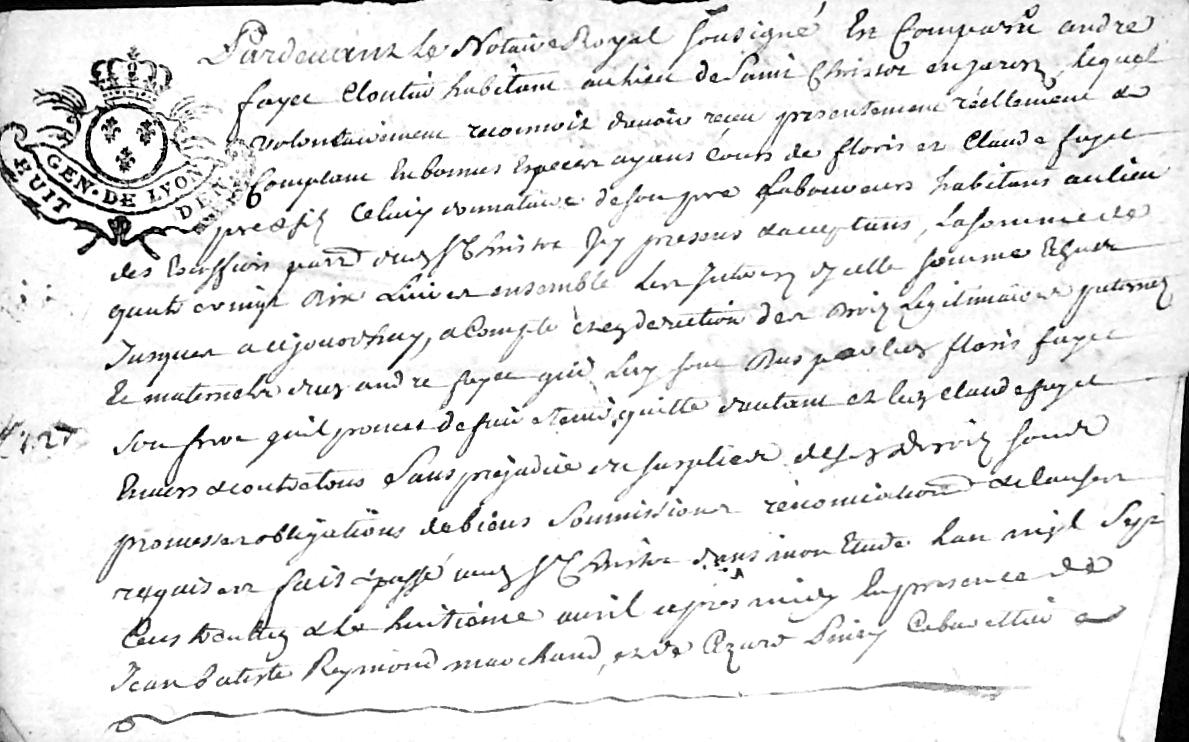 Pardevant Le Notaire Royal sousigné En Comparu andre
fayet Cloutier habitant au lieu de Saint Christor en jarez, lequel
volontairement reconnoit d'avoir receu presentement réellement &
Comptant En bonnes Especes ayant Cours de floris et Claude fayet
pere & filz Celuicy donnataire de son pere Laboureurs habitans au lieu
des parr dud St Christor Icy presens & acceptans, La somme de
quatre vingt dix Livres ensemble Les Interez d'icelle somme
Jusques a cejourdhuy, a Compte & en deduction des droitz Legitimaires paternez
Et maternels dud andre fayet qui Luy sont dus par led floris fayet
Son frere qu'il promet de faire tenir quitte d'autant et led Claude fayet
Envers & contre tous Sans prejudice du surplus de ses droitz sous
promesses obligations de biens Soumissions renonciations & clauses
requises fait & passé aud St Christor dans mon Etude Lan mil Sept
Cens & Le huitième avril apres midy En presence de
Jean batiste Reymond marchand, et de Cabaretier &
GEN. DE LYON
HUIT DEN